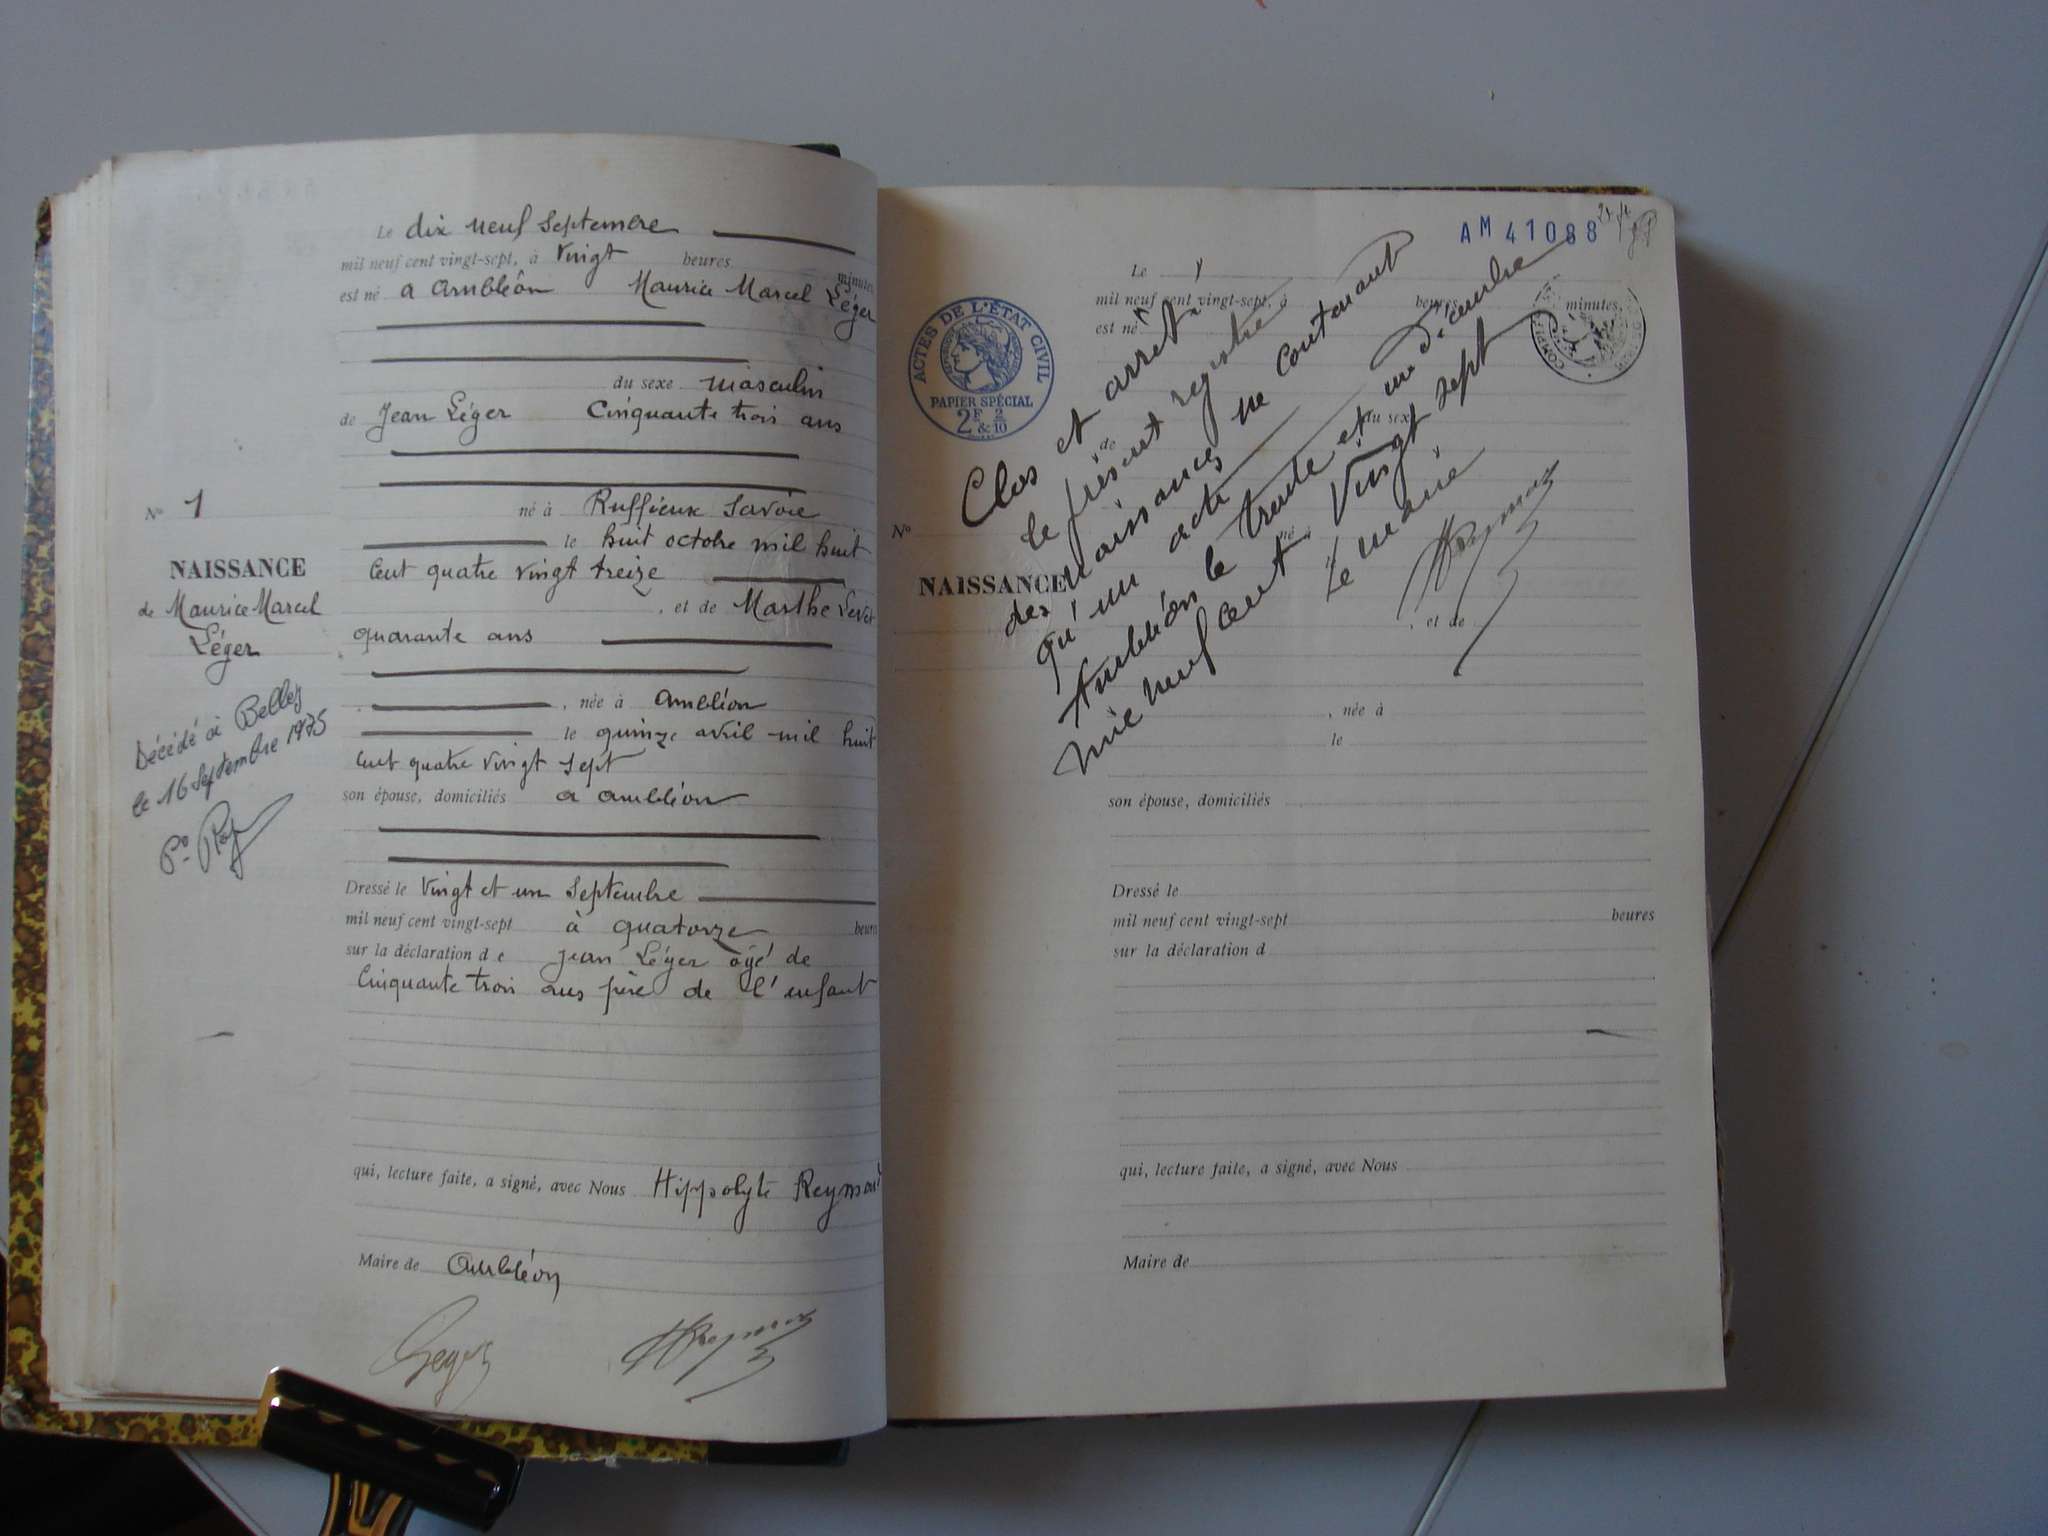 Le dix neuf Septembre
mil neuf cent vingt-sept, à Vingt heures minutes
est né a Ambléon Maurice Marcel Léger
du sexe masculin
de Jean Léger Cinquante trois ans
N° 1
né à Ruffieux Savoie
le huit octobre mil huit
Cent quatre vingt treize
NAISSANCE
de Maurice Marcel
Léger
, et de Marthe
quarante ans
, née à Ambléon
le quinze avril mil huit
Cent quatre vingt sept
son épouse, domiciliés a Ambléon
Décédé à Belley
le 16 Septembre 1975
Dressé le Vingt et un Septembre
mil neuf cent vingt-sept à quatorze heures
sur la déclaration de Jean Léger âgé de
Cinquante trois ans père de l'enfant
qui, lecture faite, a signé, avec Nous Hippolyte Reymond
Maire de Ambléon
Leger
HReymond
AM 41088
ACTES DE L'ÉTAT CIVIL
PAPIER SPÉCIAL
2F & 2/10
Le
mil neuf cent vingt-sept, à heures minutes,
est né
du sexe
de
N°
né à
NAISSANCE
, et de
, née à
le
son épouse, domiciliés
Dressé le
mil neuf cent vingt-sept heures
sur la déclaration d
qui, lecture faite, a signé, avec Nous
Maire de
Clos et arreté
le présent registre
des naissances ne contenant
qu'un acte
Ambléon le trente et un Décembre
mil neuf cent Vingt sept
Le maire
HReymond